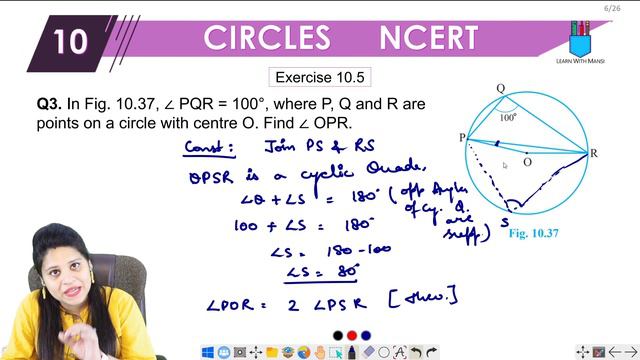 6/26
10
CIRCLES NCERT
LEARN WITH MANSI
Exercise 10.5
Q3. In Fig. 10.37, ∠ PQR = 100°, where P, Q and R are
points on a circle with centre O. Find ∠ OPR.
Const: Join PS & RS
QPSR is a cyclic Quade,
∠Q + ∠S = 180° (opp Angles
of Cy. Q.
are
supp.)
100 + ∠S = 180°
∠S = 180 - 100
∠S = 80°
∠POR = 2 ∠PSR [theo.]
Q
100°
P
O
R
S
Fig. 10.37